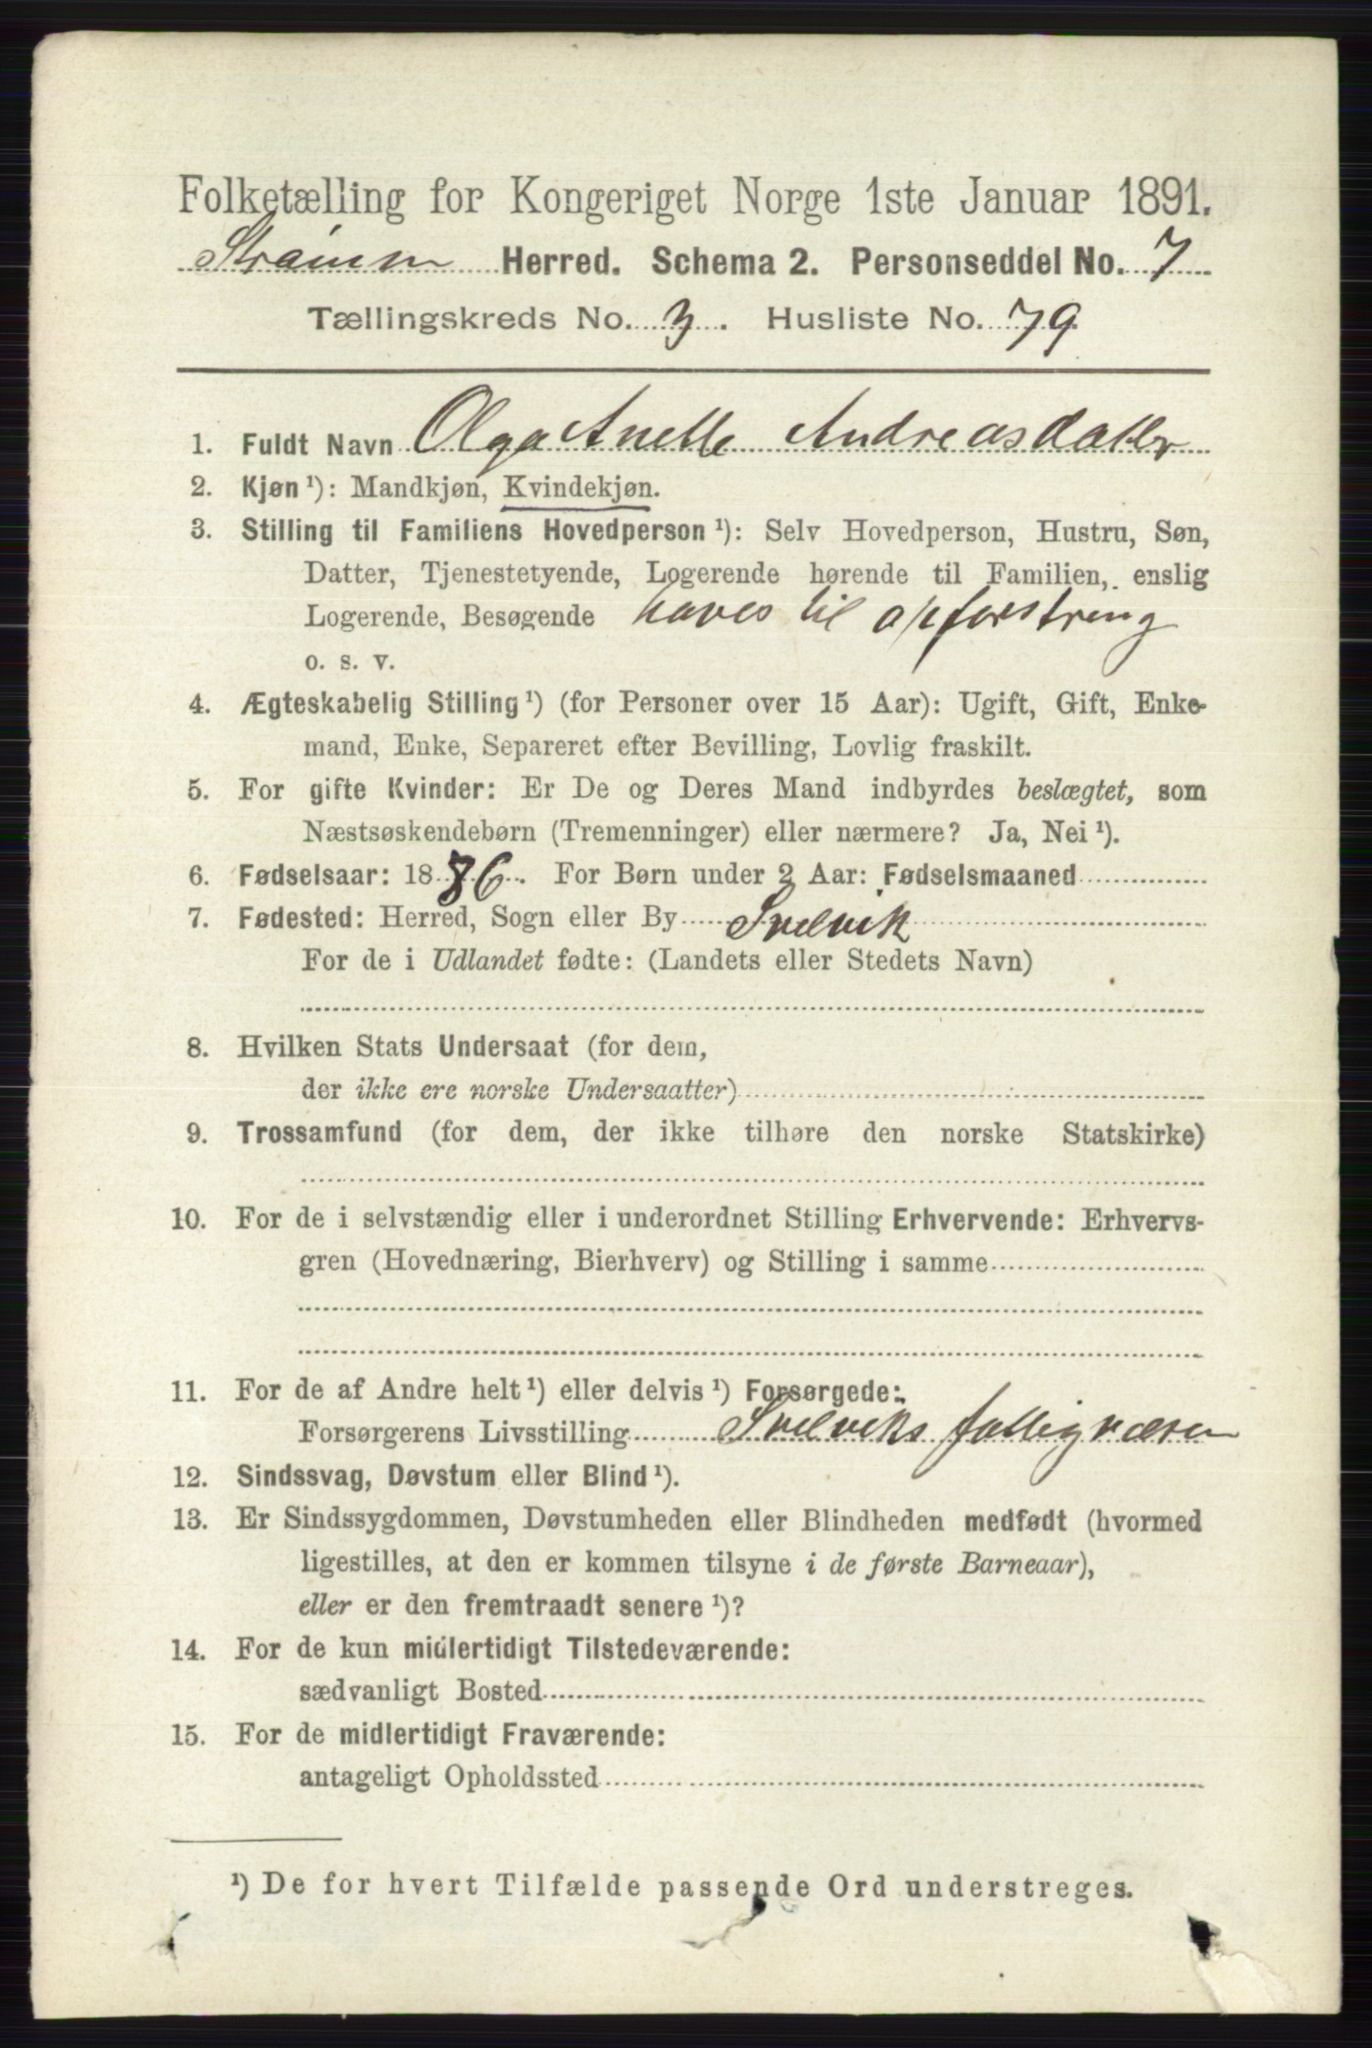 Folketælling for Kongeriget Norge 1ste Januar 1891.
Strømm Herred. Schema 2. Personseddel No. 7
Tællingskreds No. 3. Husliste No. 79
1. Fuldt Navn Olga Anette Andreasdatter
2. Kjøn ¹): Mandkjøn, Kvindekjøn.
3. Stilling til Familiens Hovedperson ¹): Selv Hovedperson, Hustru, Søn,
Datter, Tjenestetyende, Logerende hørende til Familien, enslig
Logerende, Besøgende haves til opfostring
o. s. v.
4. Ægteskabelig Stilling ¹) (for Personer over 15 Aar): Ugift, Gift, Enke-
mand, Enke, Separeret efter Bevilling, Lovlig fraskilt.
5. For gifte Kvinder: Er De og Deres Mand indbyrdes beslægtet, som
Næstsøskendebørn (Tremenninger) eller nærmere? Ja, Nei ¹).
6. Fødselsaar: 1886. For Børn under 2 Aar: Fødselsmaaned
7. Fødested: Herred, Sogn eller By Svelvik
For de i Udlandet fødte: (Landets eller Stedets Navn)
8. Hvilken Stats Undersaat (for dem,
der ikke ere norske Undersaatter)
9. Trossamfund (for dem, der ikke tilhøre den norske Statskirke)
10. For de i selvstændig eller i underordnet Stilling Erhvervende: Erhvervs-
gren (Hovednæring, Bierhverv) og Stilling i samme
11. For de af Andre helt ¹) eller delvis ¹) Forsørgede:
Forsørgerens Livsstilling Svelviks fattigvæsen
12. Sindssvag, Døvstum eller Blind ¹).
13. Er Sindssygdommen, Døvstumheden eller Blindheden medfødt (hvormed
ligestilles, at den er kommen tilsyne i de første Barneaar),
eller er den fremtraadt senere ¹)?
14. For de kun midlertidigt Tilstedeværende:
sædvanligt Bosted
15. For de midlertidigt Fraværende:
antageligt Opholdssted
¹) De for hvert Tilfælde passende Ord understreges.